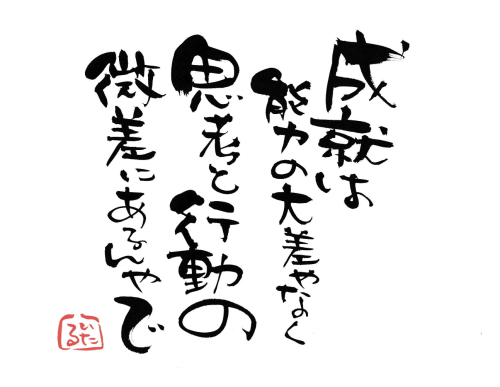 成就は
能力の大差やなく
思考と行動の
微差にあるんやで